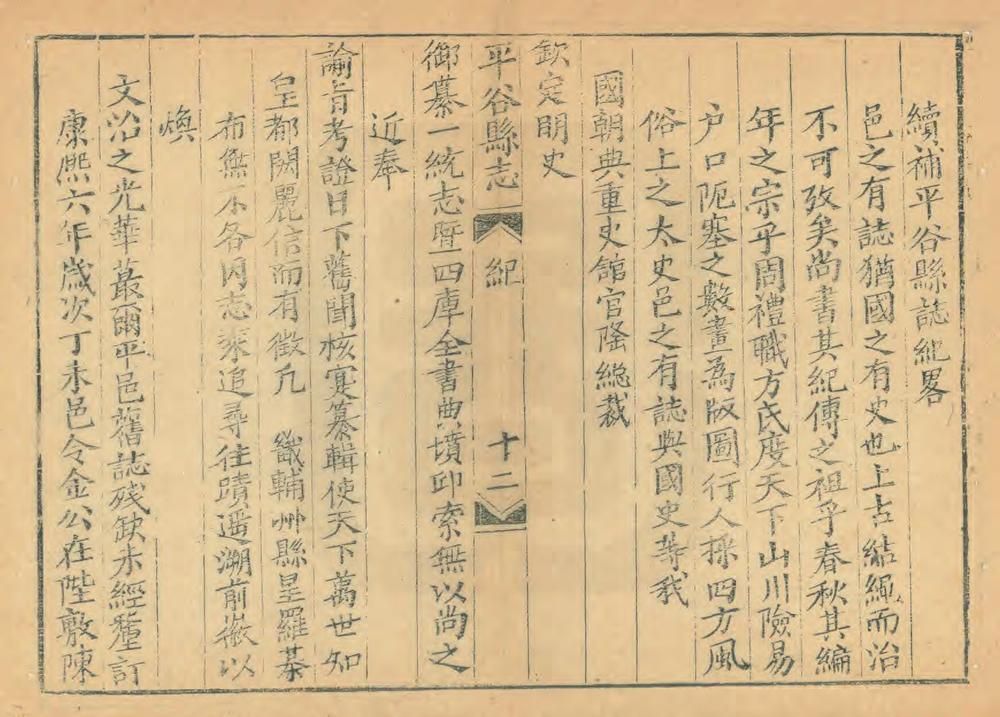 續補平谷縣誌紀畧
邑之有誌猶國之有史也上古結繩而治
不可攷矣尚書其紀傳之祖乎春秋其編
年之宗乎周禮職方氏度天下山川險易
户口阨塞之數畫為版圖行人採四方風
俗上之太史邑之有誌與國史等我
國朝典重史舘官隆総裁
欽定明史
平谷縣志 紀 十二
御纂一統志暨四庫全書典墳邱索無以尚之
近奉
諭旨考證日下舊聞核寔纂輯使天下萬世知
皇都閎麗信而有徵凢 畿輔州縣星羅棊
布無不各因志乘追尋往蹟遥溯前徽以
煥
文治之光華蕞爾平邑舊誌殘缺未經釐訂
康熙六年歲次丁未邑令金公在陛敷陳